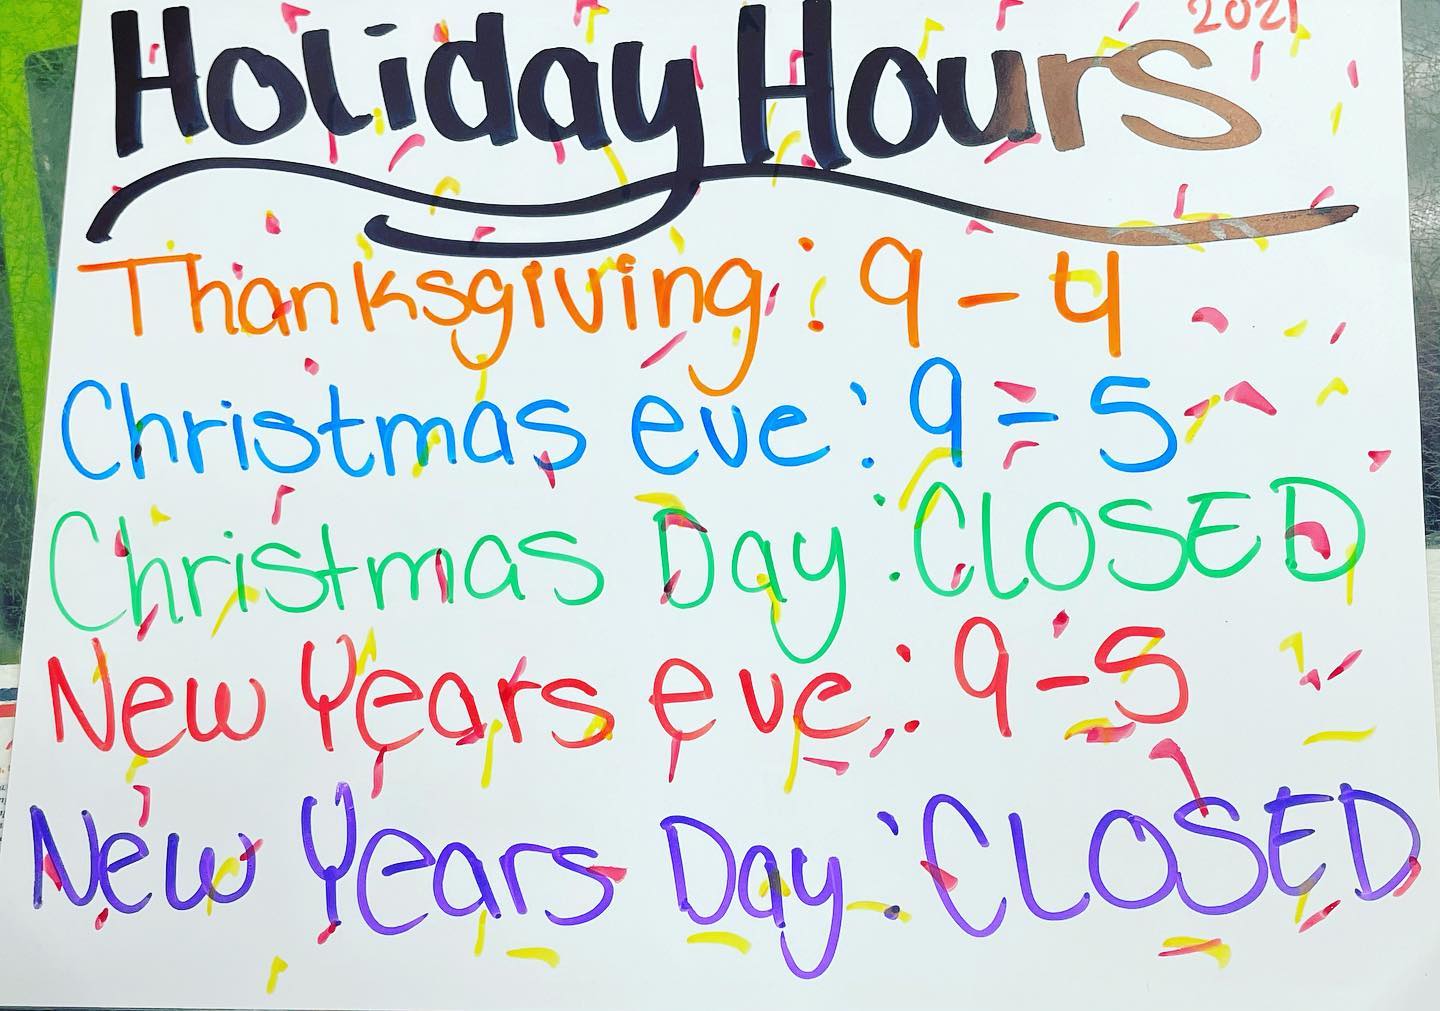 2021
Holiday Hours
Thanksgiving: 9-4
Christmas eve: 9-5
Christmas Day: CLOSED
New Years eve: 9-5
New Years Day: CLOSED